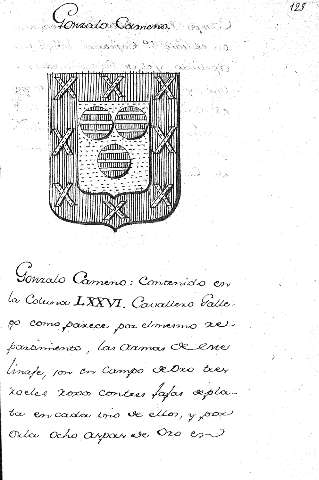 125
Gonzalo Cameno.
Gonzalo Cameno: Contenido en
la Coluna LXXVI. Cavallero Galle-
go como parece por el mismo re-
partimiento, las Armas de este
linaje, son en Campo de Oro tres
roeles roxos con tres fajas de pla-
ta en cada uno de ellos, y por
Orla ocho aspas de Oro en